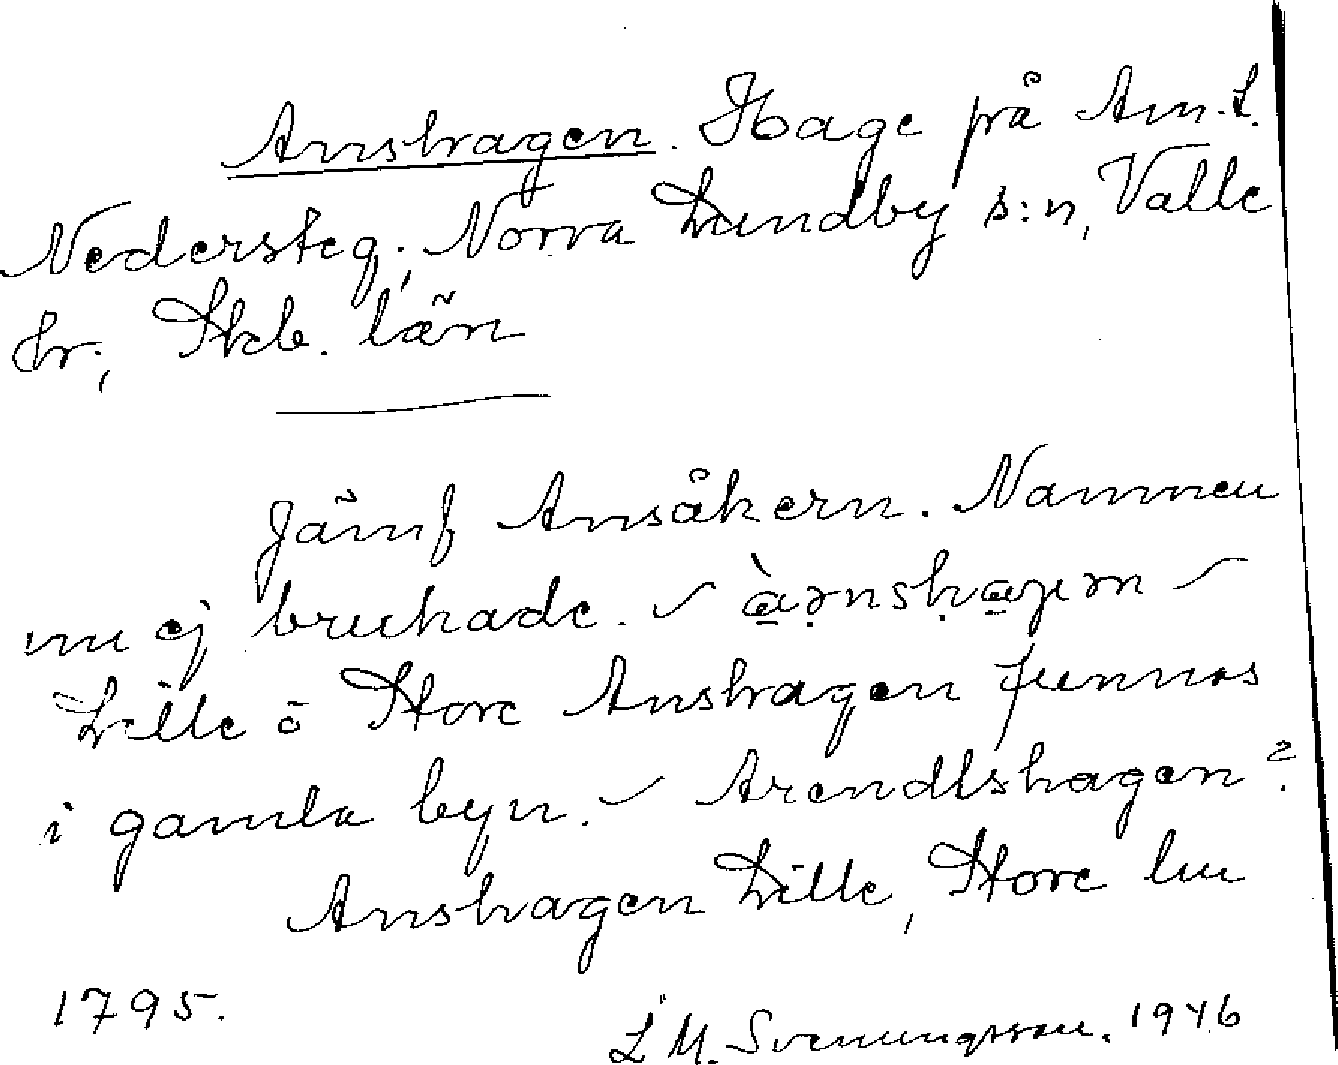 Anshagen. Hage på Am.L.
Nedersteg; Norra Lundby s:n, Valle
hr; Skb. län
Jämf Ansåkern. Namnen
nu ej brukade. – –
Lille o Store Anshagen funnos
i gamla byn. – Arendtshagen?
Anshagen Lille, Store lm
1795.
L M. Svenungsson. 1946